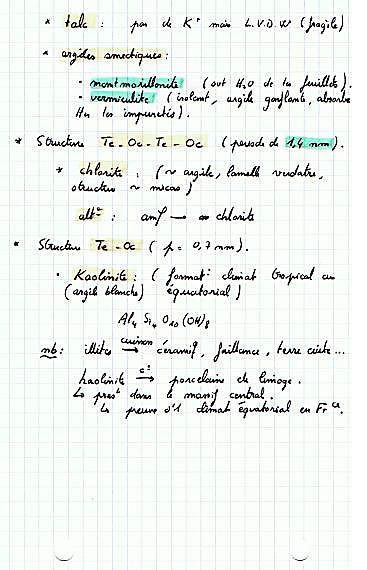 * talc : pas de K⁺ mais L.V.D.W (fragile)
* argiles smectiques :
- montmorillonite (ont H₂O de les feuillets).
- vermiculite (isolant, argile gonflante, absorbe
les impuretés).
* Structure Te - Oc - Te - Oc (période de 1,4 nm).
* chlorite : (~ argile, lamelle verdâtre,
structure ~ micas)
altᵒ : amf → chlorite
* Structure Te - Oc (p = 0,7 nm).
• Kaolinite : (formatᵒ climat tropical ou
(argile blanche) équatorial)
Al₄ Si₄ O₁₀ (OH)₈
nb : illites cuisson → céramiq, faillance, terre cuite...
kaolinite → porcelaine de limoge.
↳ présᵗ dans le massif central.
↳ preuve d'1 climat équatorial en Frᶜᵉ.